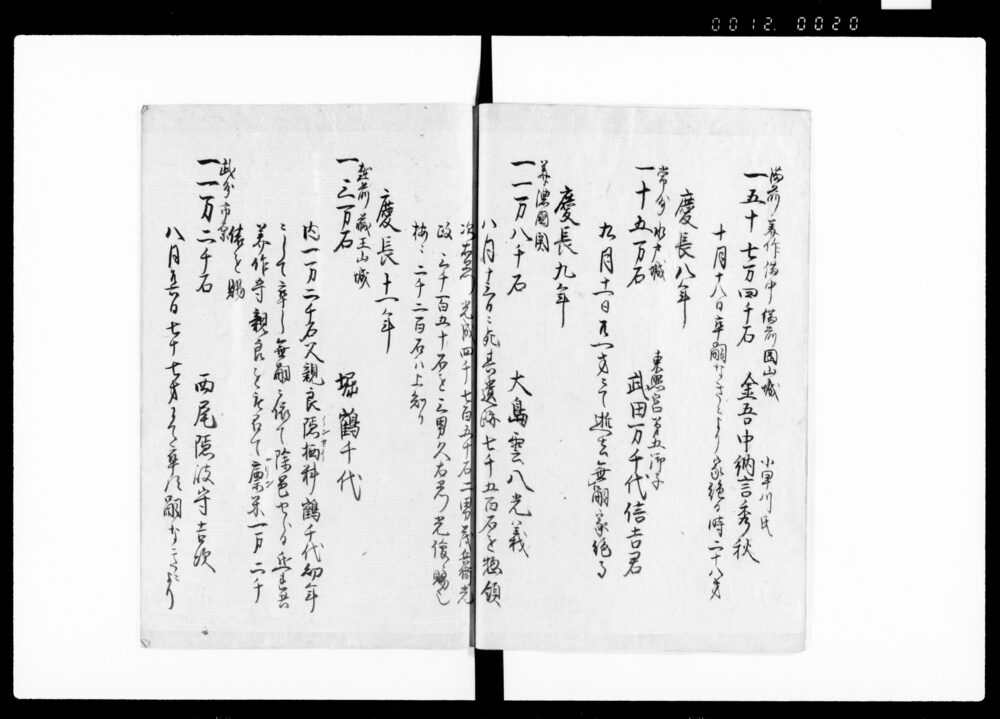 0012. 0020
備前美作備中備前岡山城
一五十七万四千石 金吾中納言秀秋
小早川氏
十月十八日卒嗣なきより家絶る時二十八才
慶長八年
常州水戸城
一十五万石 武田万千代信吉君
東照宮第五御子
九月十一日廿一才にて逝去無嗣家絶る
慶長九年
美濃国関
一一万八千石 大島雲八光義
八月廿三日ニ死其遺跡七千五百石を惣領
次右衛門光成四千七百五十石二男茂兵衛光
政三千百五十石を三男久右衛門光俊賜し
二千二百石ハ上知り
慶長十一年
越前蔵王山城
一三万石 堀鶴千代
内一万二千石父親良隠栖料鶴千代幼年
にして卒し無嗣依て除邑せらる
美作守親良を召て廩米一万二千
俵を賜
武州市原
一一万二千石 西尾隠岐守吉次
八月廿六日七十七才にて卒す嗣なきにより